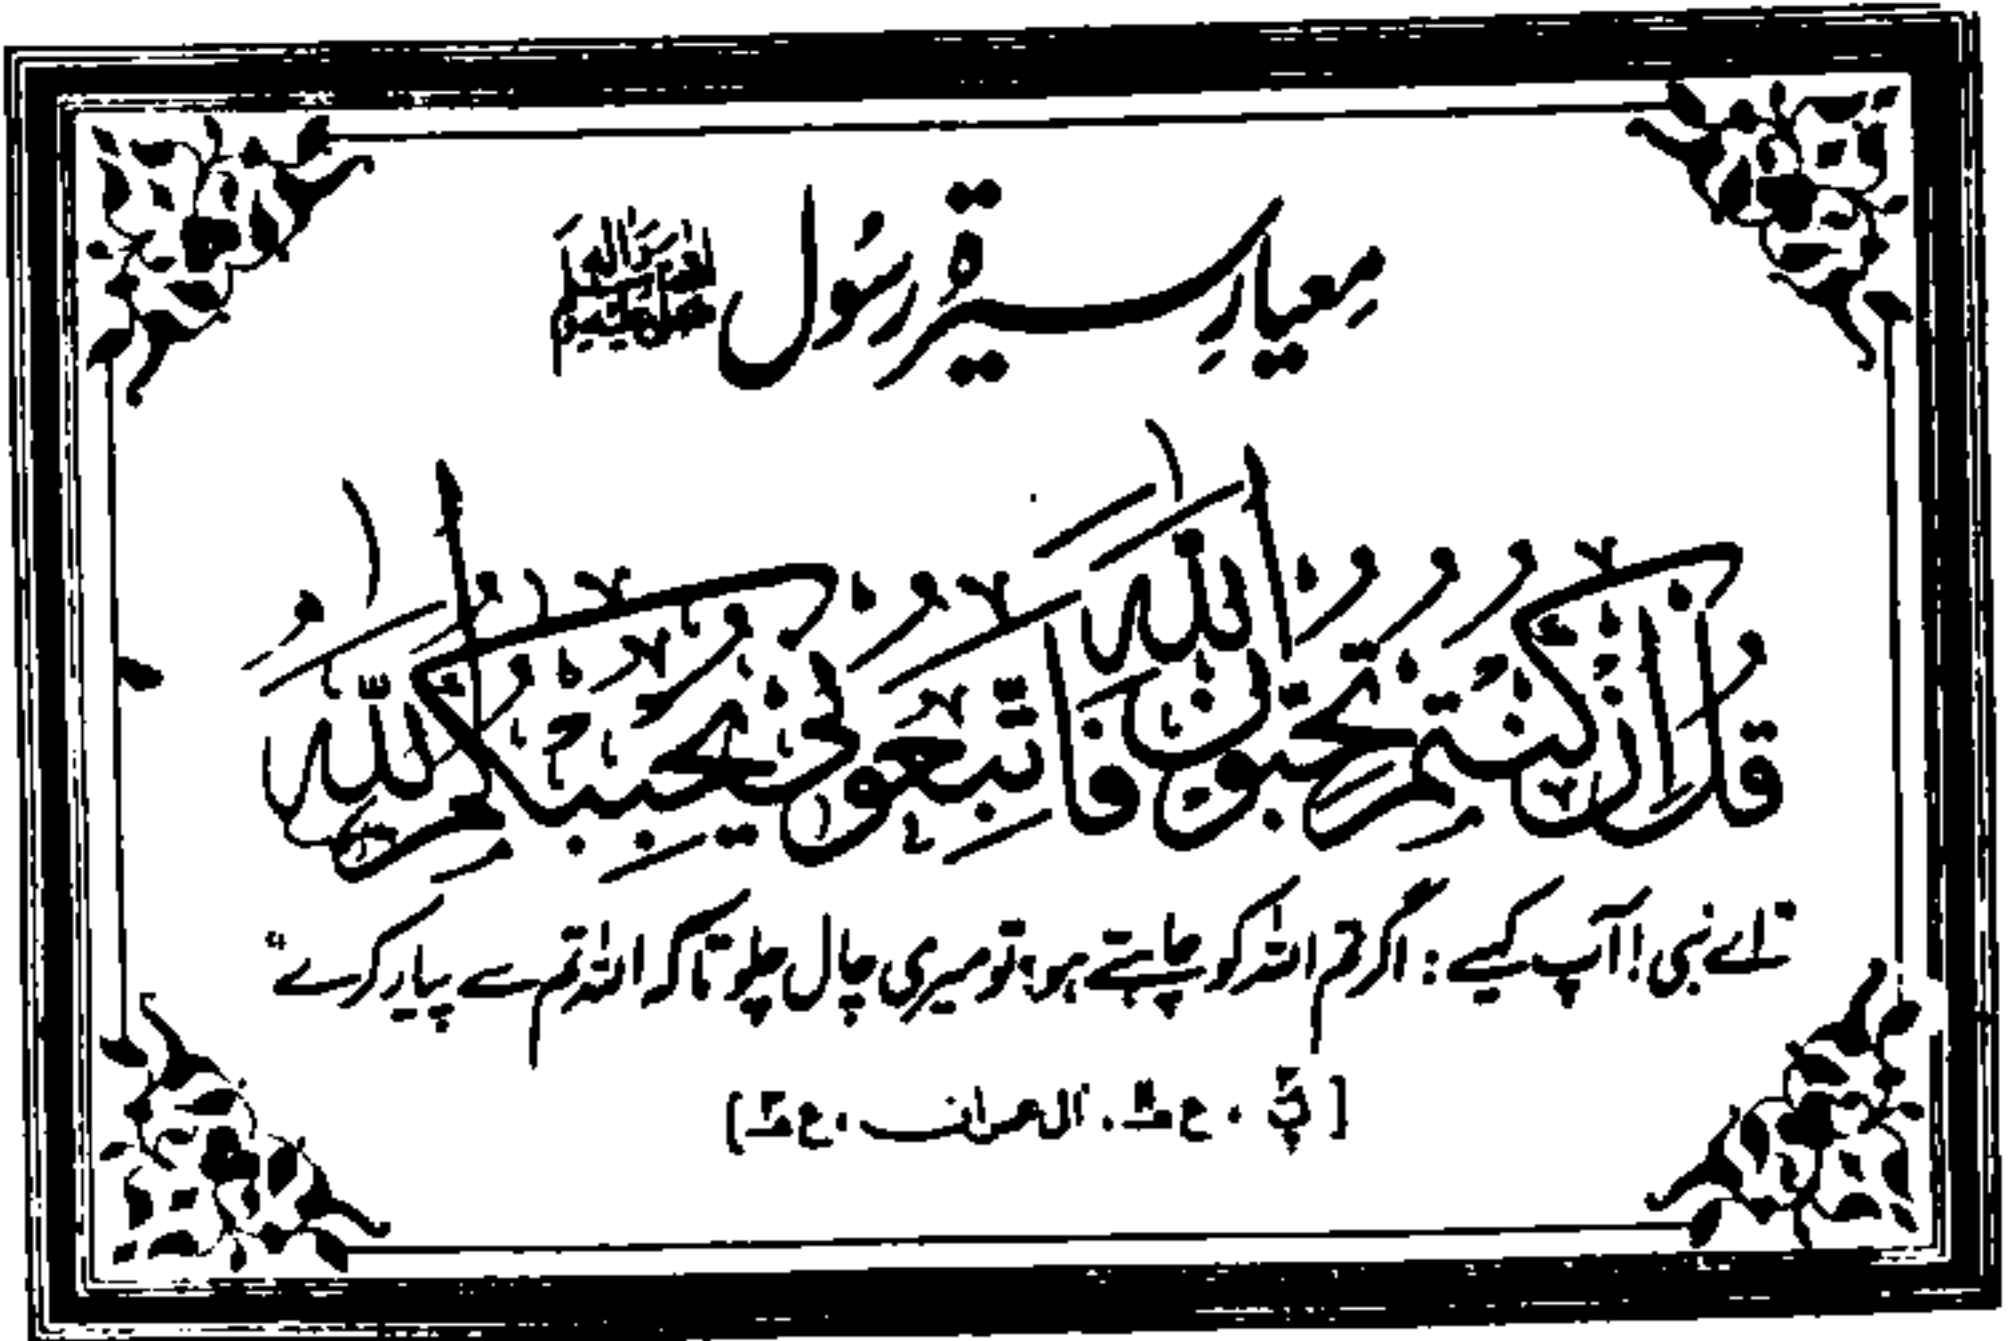 معیارِ سیرۃ رسُول ﷺ
قُلْ اِنْ كُنْتُمْ تُحِبُّوْنَ اللّٰهَ فَاتَّبِعُوْنِیْ یُحْبِبْكُمُ اللّٰهُ
"اے نبی! آپ کہیے: اگر تم اللہ کو چاہتے ہو، تو میری چال چلو تاکہ اللہ تم سے پیار کرے"
[پ ۳ ، ع ، آل عمران ، ع]